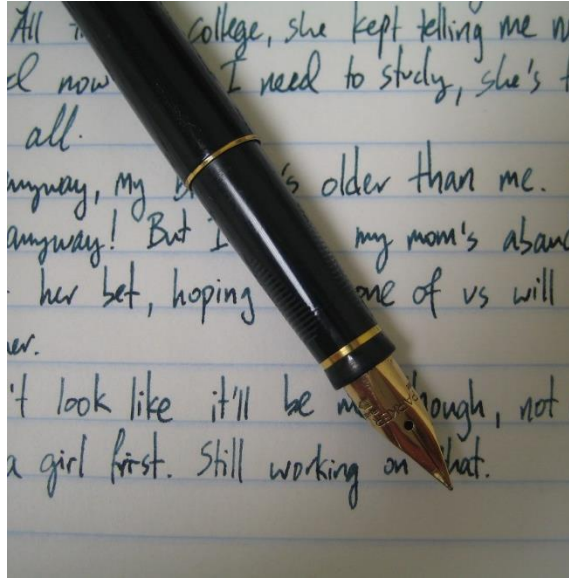 All college, she kept telling me
now I need to study, she's
all.
anyway, my older than me.
anyway! But I my mom's
her bet, hoping one of us will
look like it'll be though, not
a girl first. Still working on that.
PARKER